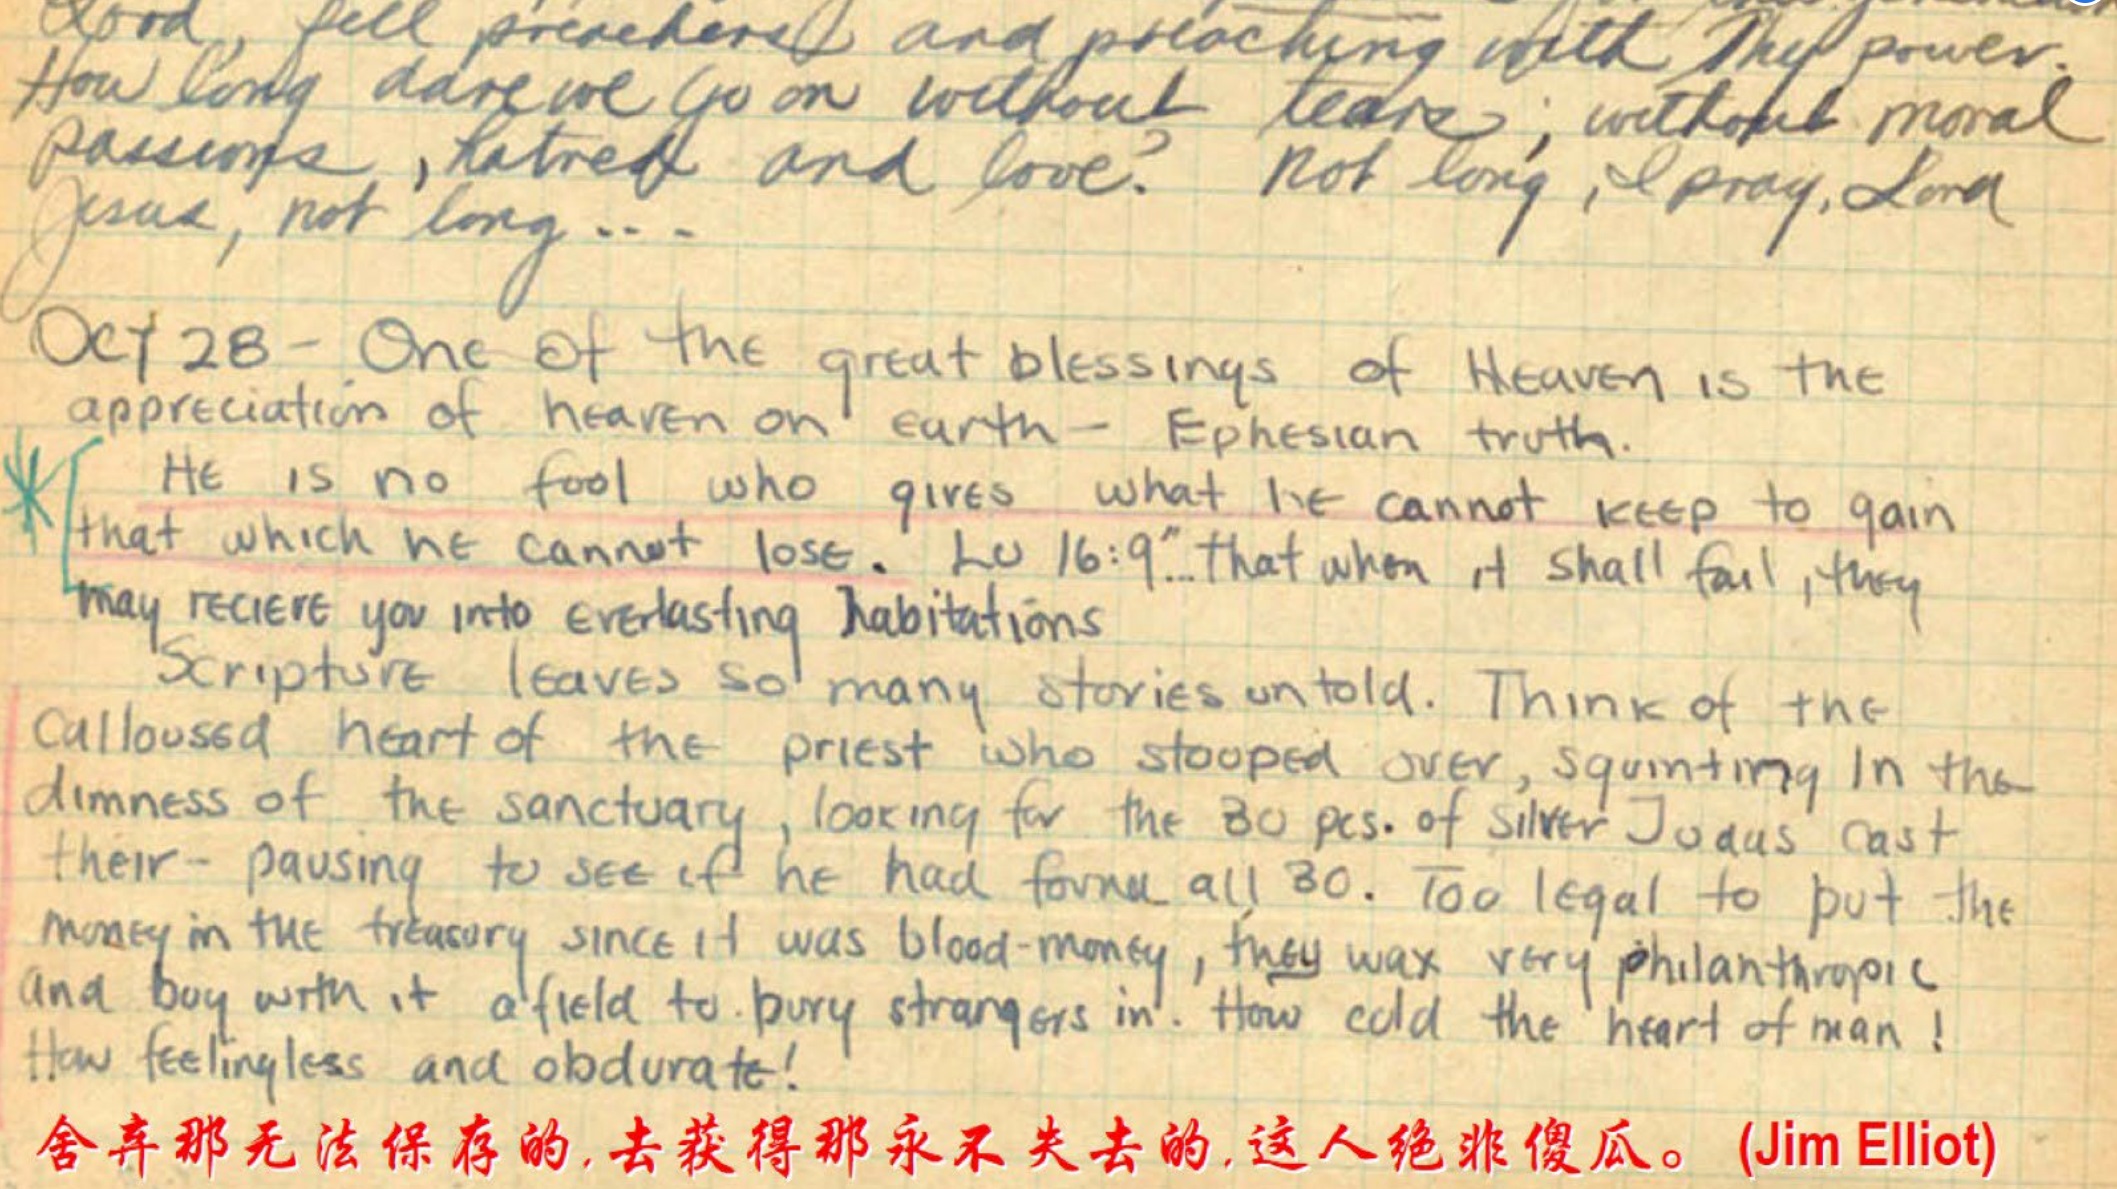 Lord, fill preachers and preaching with Thy power.
How long dare we go on without tears, without moral
passions, hatred and love? Not long, I pray, Lord
Jesus, not long...
Oct 28 - One of the great blessings of Heaven is the
appreciation of heaven on earth - Ephesian truth.
He is no fool who gives what he cannot keep to gain
that which he cannot lose. Lu 16:9 "...that when it shall fail, they
may recieve you into everlasting habitations
Scripture leaves so many stories untold. Think of the
calloused heart of the priest who stooped over, squinting in the
dimness of the sanctuary, looking for the 30 pcs. of silver Judas cast
their - pausing to see if he had found all 30. Too legal to put the
money in the treasury since it was blood-money, they wax very philanthropic
and buy with it a field to bury strangers in. How cold the heart of man!
How feelingless and obdurate!
舍弃那无法保存的,去获得那永不失去的,这人绝非傻瓜。 (Jim Elliot)